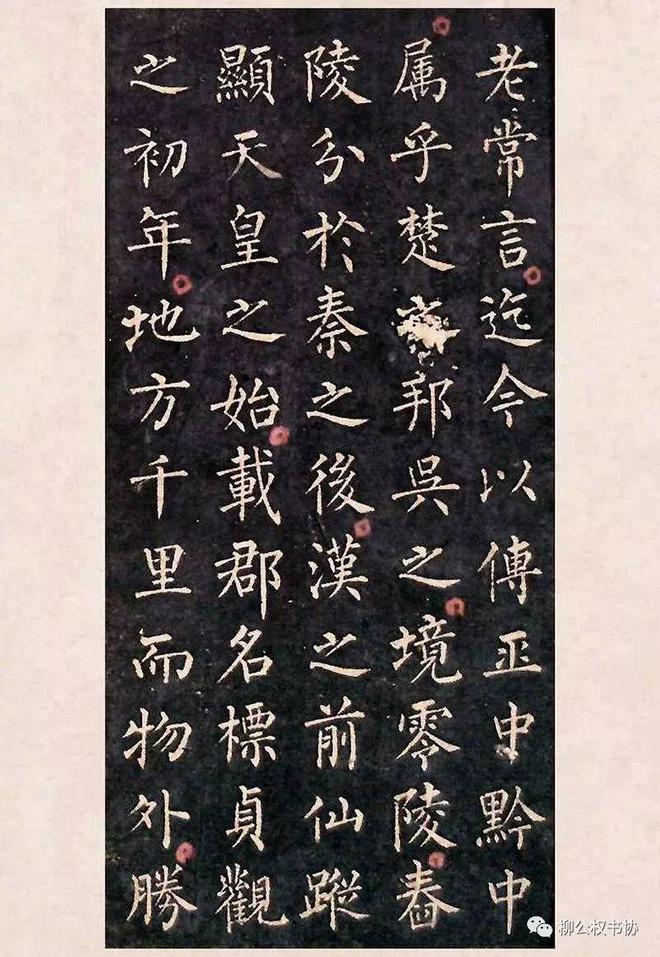 老常言迄今以傳巫中黔中
属乎楚邦吳之境零陵舂
陵分於秦之後漢之前仙蹤
顯天皇之始載郡名標貞觀
之初年地方千里而物外勝
柳公权书协